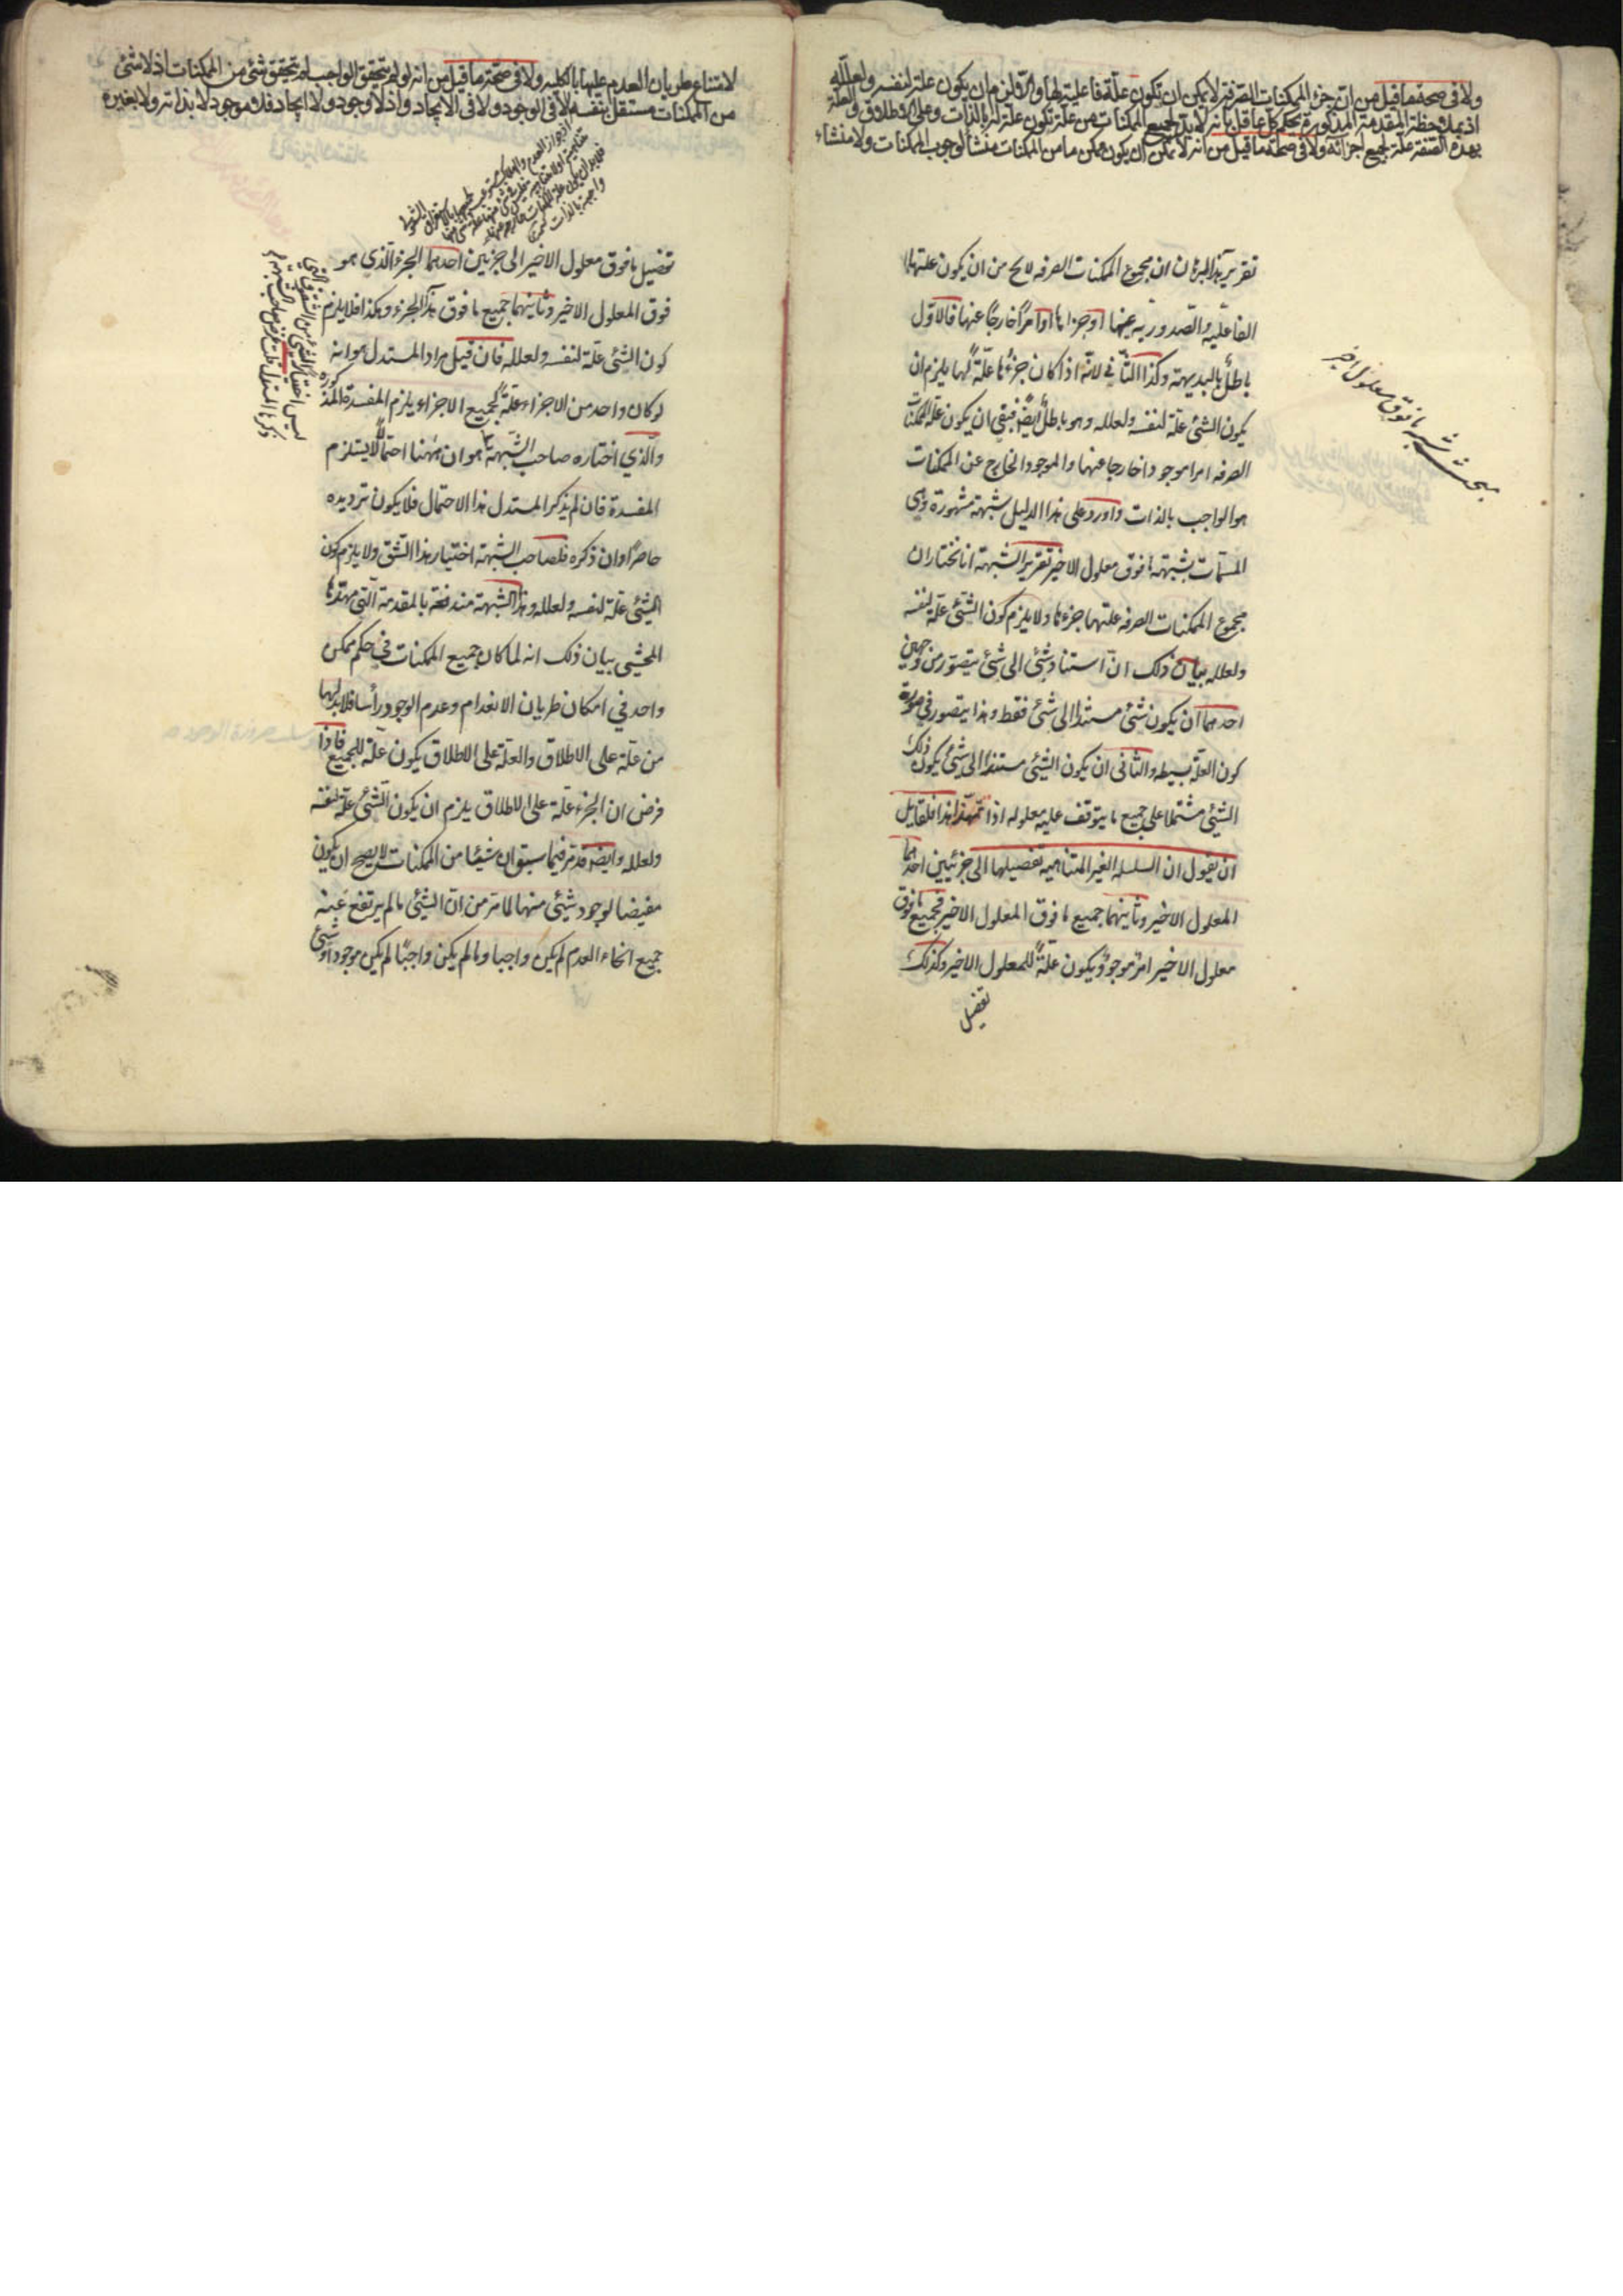 ولا فى صحة ما قيل من ان جزء الممكنات الصرفة لا يمكن ان يكون علة فاعلية لها والا لزم ان يكون علة لنفسه ولعلله
اذ بملاحظة المقدمة المذكورة يحكم كل عاقل بانه لا بد لجميع الممكنات من علة تكون علة له بالذات وعلى الاطلاق والعلة
بهذه الصفة علة لجميع اجزائه ولا فى صحة ما قيل من انه لا يمكن ان يكون ممكن ما من الممكنات منشأ لوجوب الممكنات ولا منشاء
تقرير هذا البرهان ان مجموع الممكنات الصرفه لا يخ من ان يكون علتها
الفاعليه والصدوريه عينها او جزءها او امرًا خارجًا عنها فالاوّل
باطلٌ بالبديهة وكذا الثانى لانه اذا كان جزءُها علّةً لها يلزم ان
يكون الشئ علة لنفسه ولعلله وهو باطلٌ ايضًا فبقى ان يكون علة الممكنات
الصرفه امرا موجودا خارجا عنها والموجود الخارج عن الممكنات
هو الواجب بالذات واورد على هذا الدليل شبهة مشهورة وهى
المسمّات بشبهة ما فوق معلول الاخير تقرير الشبهة انا نختار ان
مجموع الممكنات الصرفه علتها جزءها ولا يلزم كون الشئ علة لنفسه
ولعلله بيان ذلك انّ استناد شئ الى شئ يتصور من وجهين
احدهما ان يكون شئ مستندا الى شئ فقط وهذا يتصور في صورة
كون العلة بسيطه والثانى ان يكون الشئ مستندا الى شئ يكون ذلك
الشئ مشتملا على جميع ما يتوقف عليه معلوله اذا تمهّد هذا فلقايل
ان يقول ان السلسله الغير المتناهيه تفصيلها الى جزئيين احدهما
المعلول الاخير وثانيهما جميع ما فوق المعلول الاخير فجميع ما فوق
معلول الاخير امرٌ موجودٌ يكون علّةً للمعلول الاخير وكذلك
تفصيل
بحث شبهة ما فوق معلول اخير
لامتناع طريان العدم عليها بالكليه ولا فى صحة ما قيل من انه لو لم يتحقق الواجب لم يتحقق شئ من الممكنات اذ لا شئ
من الممكنات مستقل بنفسه لا فى الوجود ولا فى الايجاد واذ لا وجود ولا ايجاد فلا موجود لا بذاته ولا بغيره
تفصيل ما فوق معلول الاخير الى جزئين احدهما الجزء الذي هو
فوق المعلول الاخير وثانيهما جميع ما فوق هذا الجزء وهكذا فلا يلزم
كون الشئ علّة لنفسه ولعلله فان قيل مراد المستدل هو انه
لو كان واحد من الاجزاء علّةً لجميع الاجزاء يلزم المفسدة المذكورة
والّذي اختاره صاحب الشّبهة هو ان ههنا احتمالًا لا يستلزم
المفسدة فان لم يذكر المستدل هذا الاحتمال فلا يكون ترديده
حاصرًا وان ذكره فلصاحب الشبهة اختيار هذا الشق ولا يلزم كون
الشئ علّة لنفسه ولعلله وهذا الشبهة مندفعة بالمقدمة الّتي مهّدها
المحشى بيان ذلك انه لما كان جميع الممكنات في حكم ممكن
واحد في امكان طريان الانعدام وعدم الوجود رأسا فلابد لها
من علّة على الاطلاق والعلّة على الاطلاق يكون علّة للجميع فاذا
فرض ان الجزء علّة على الاطلاق يلزم ان يكون الشئ علّة لنفسه
ولعلله وايضا قد مر فيما سبق ان شيئا من الممكنات لا يصح ان يكون
مفيضا لوجود شئ منها لما مر من انّ الشئ ما لم يرتفع عنه
جميع انحاء العدم لم يكن واجبا وما لم يكن واجبًا لم يكن موجودا وشئ